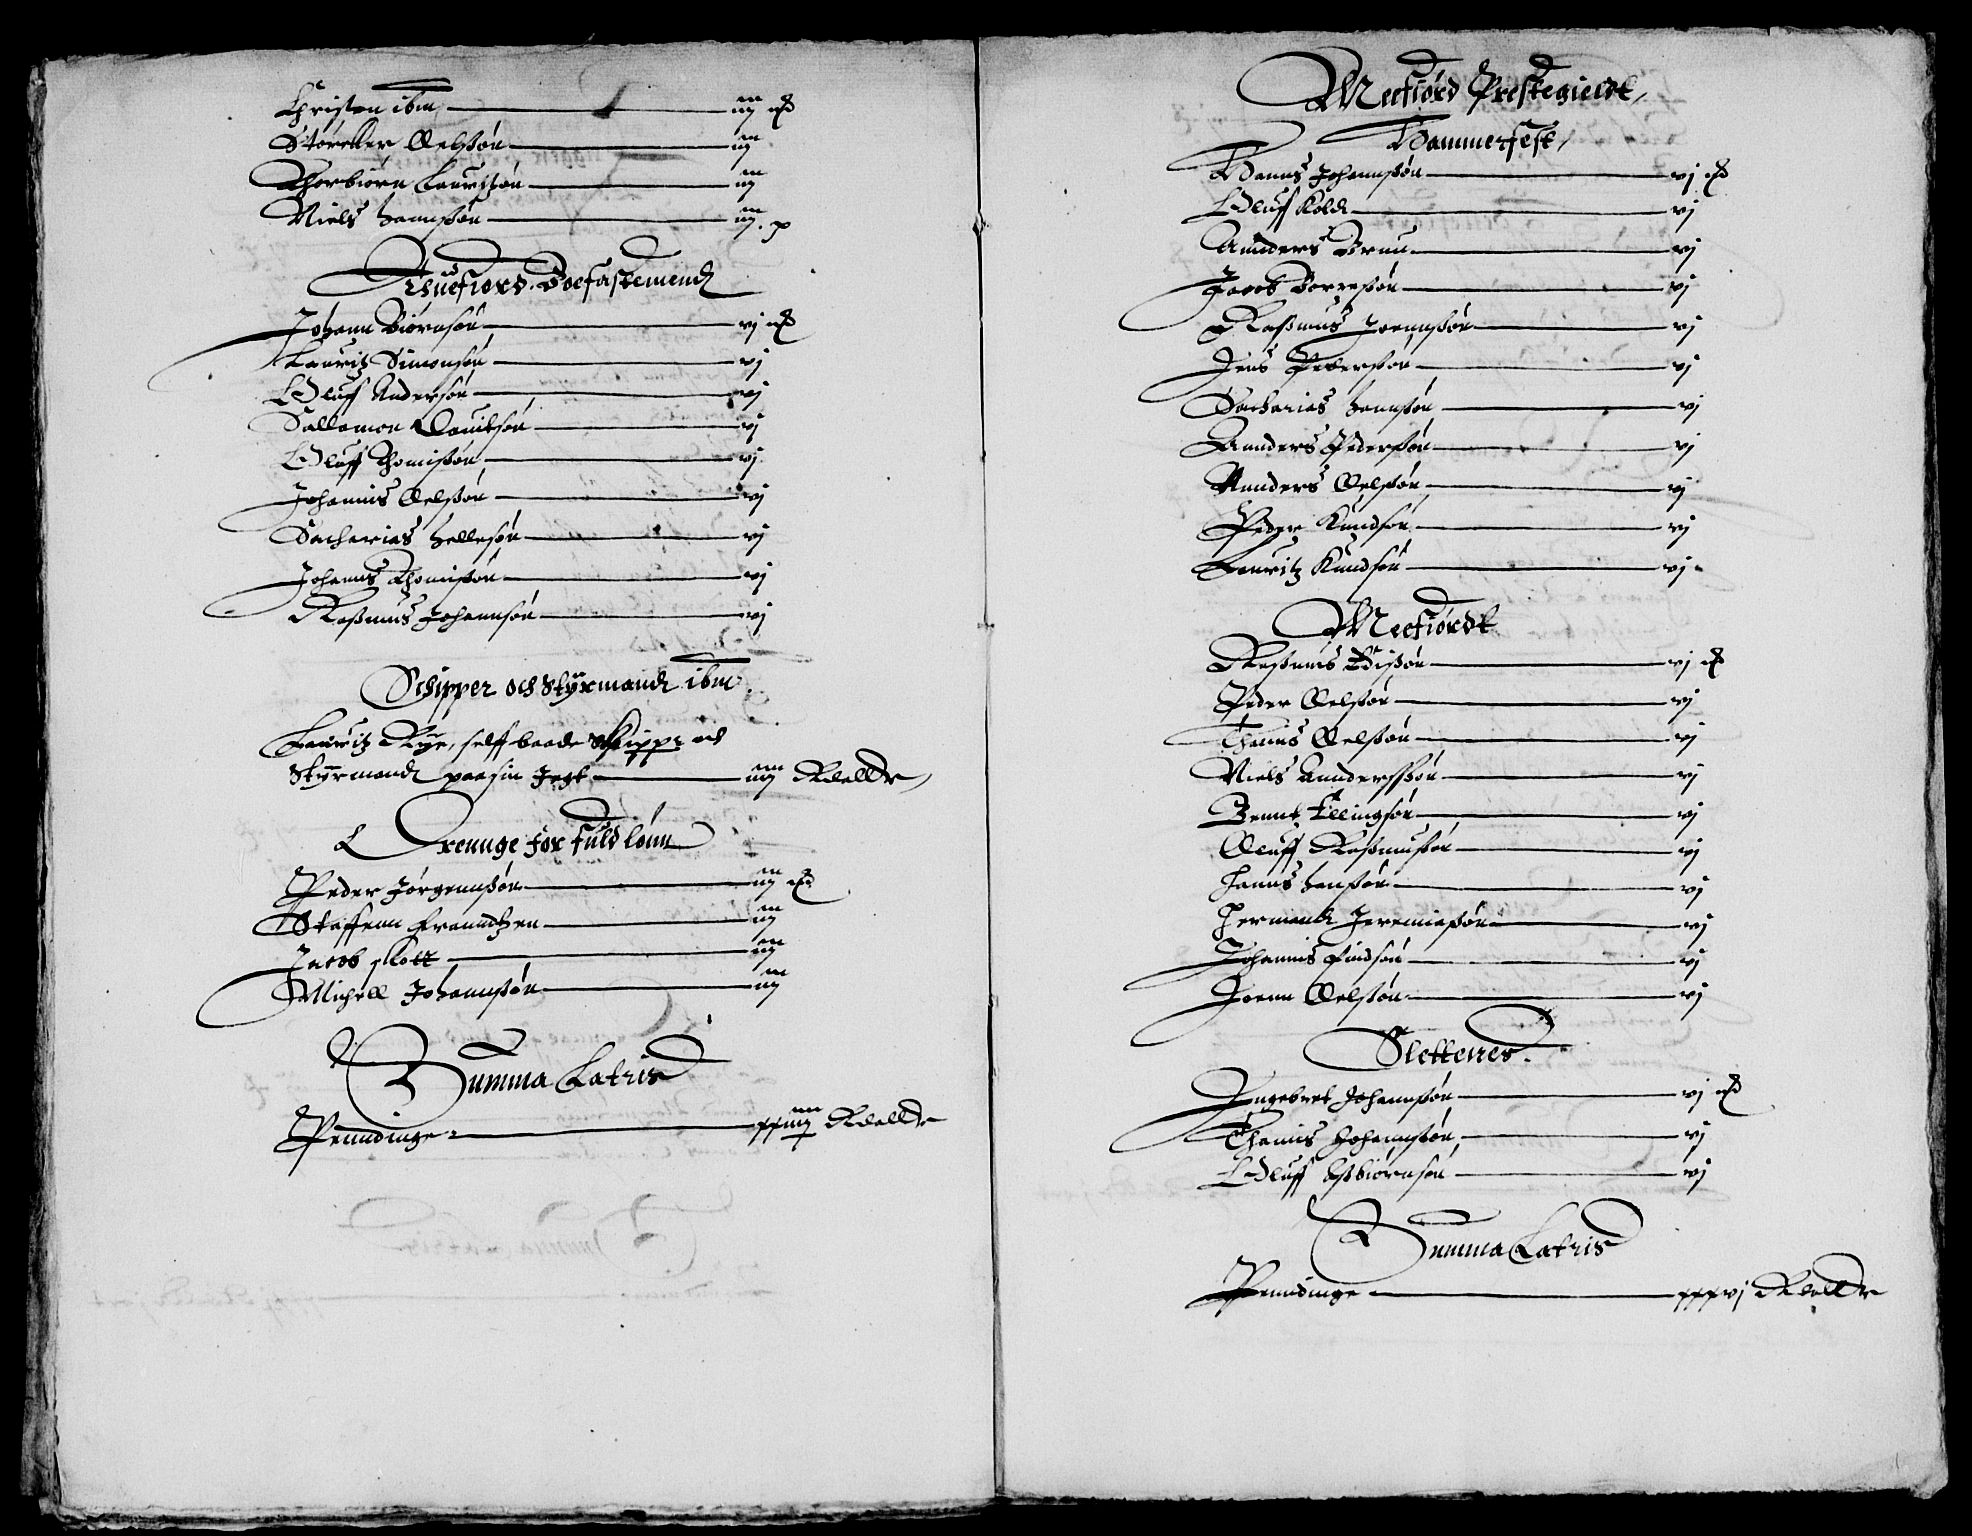 Christen ibm — iiij mk
Størcker Oelßøn — iiij
Thorbiørn Lauritzøn — iiij
Niels Hannßøn — iiij
Thuefiord. Boefastemend
Johann Biørnsøn — vj mk
Lauritz Simonsøn — vj
Oluff Andersøn — vj
Sallomon Dauidsøn — vj
Oluff Thomißøn — vj
Johannis Oelßøn — vj
Sacharias Hellesøn — vj
Johannis Thomißøn — vj
Raßmus Johannsøn — vj
Schipper och Styrmand ibm
Lauritz Rÿe, selff baade Skipper och
Styrmand paa sin Jegt — iiij Rdalldr
Drennge for fuld lønn
Peder Jørgennßøn — iiij mk
Staffenn Franndtzen — iiij
Jacob Skott — iiij
Michell Johannßøn — iiij
Summa Latris
Penndinge — xxiiij Rdalldr
Mefiord Prestegieldt
Hammerfest
Hanns Johannßøn — vj mk
Oluff Kold — vj
Annders Brun — vj
Jacob Borreßøn — vj
Raßmus Joennßøn — vj
Jens Pederßøn — vj
Sacharias Hannßøn — vj
Annders Pederßøn — vj
Annders Oelßøn — vj
Peder Knudsøn — vj
Lauritz Knudsøn — vj
Mefiordt
Raßmus Edißøn — vj mk
Peder Oelßøn — vj
Thonnis Oelßøn — vj
Niels Anndersßøn — vj
Bennt Ellingsøn — vj
Oluff Raßmußøn — vj
Hanns Hanßøn — vj
Hermand Jeremiaßøn — vj
Johannis Findsøn — vj
Joenn Oelßøn — vj
Slettenes.
Ingebret Johannßøn — vj mk
Thonnis Johannßøn — vj
Oluff Asbiørnsøn — vj
Summa Latris
Penndinge — xxxvj Rdalldr